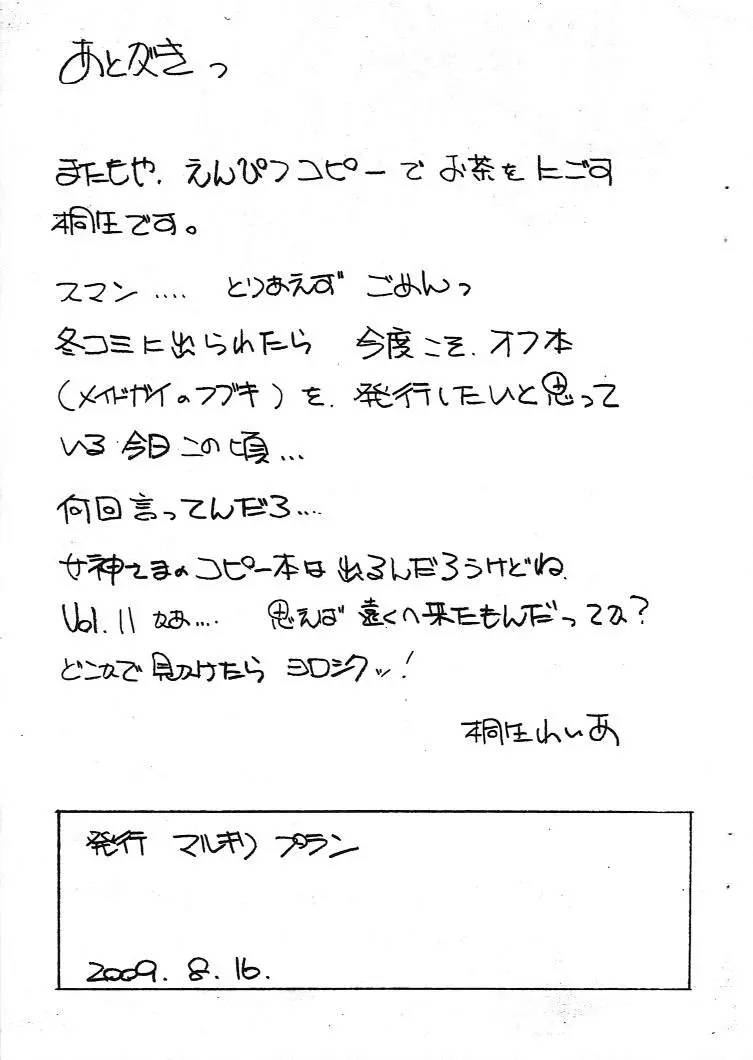 あとがきっ
またもや、えんぴつコピーで お茶を にごす
桐生です。
スマン‥‥ とりあえず ごめんっ
冬コミに出られたら 今度こそ、オフ本
(メイドガイのフブキ)を、発行したいと思って
いる 今日この頃…
何回言ってんだろ‥‥
女神さまのコピー本は 出るんだろうけどね、
Vol.11 なぁ‥‥ 思えば 遠くへ来たもんだってか?
どこかで 見かけたら ヨロシクッ!
桐生れいあ
発行 マルキリ プラン
2009.8.16.